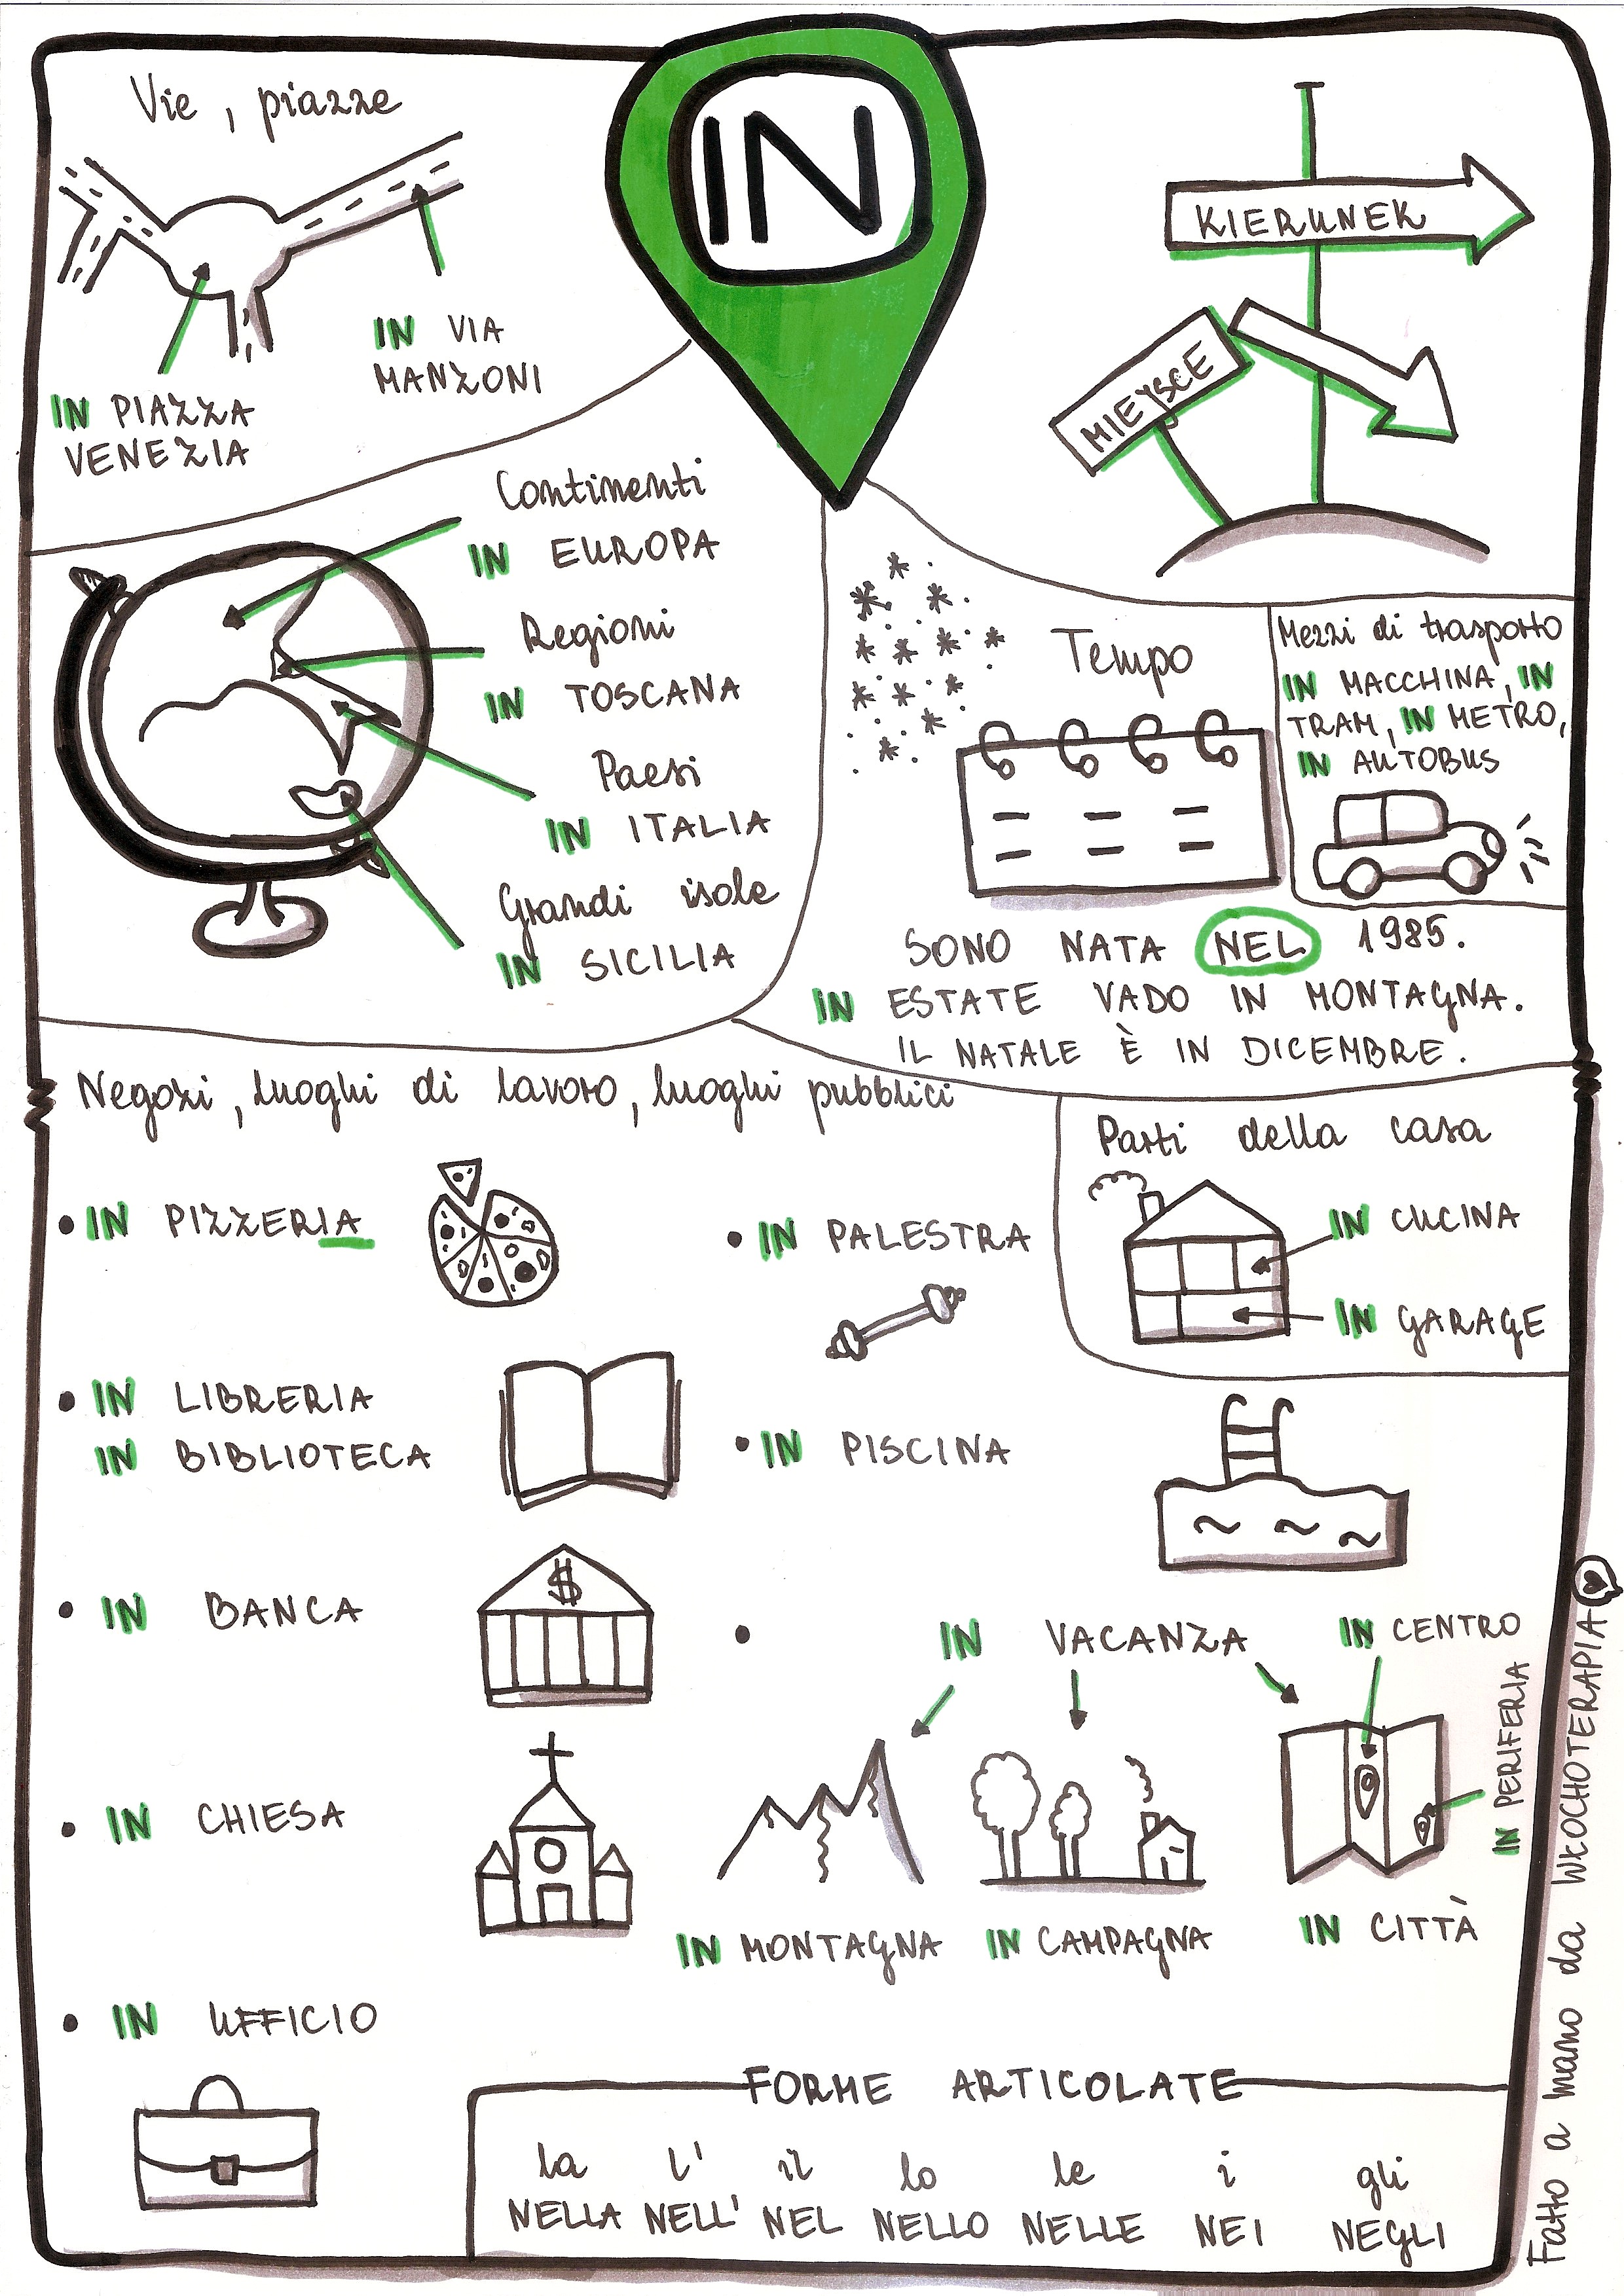 IN
Vie, piazze
IN VIA
MANZONI
IN PIAZZA
VENEZIA
KIERUNEK
MIEJSCE
Continenti
IN EUROPA
Regioni
IN TOSCANA
Paesi
IN ITALIA
Grandi isole
IN SICILIA
Tempo
Mezzi di trasporto
IN MACCHINA, IN
TRAM, IN METRO,
IN AUTOBUS
SONO NATA NEL 1985.
IN ESTATE VADO IN MONTAGNA.
IL NATALE È IN DICEMBRE.
Negozi, luoghi di lavoro, luoghi pubblici
• IN PIZZERIA
• IN LIBRERIA
IN BIBLIOTECA
• IN BANCA
$
• IN CHIESA
• IN UFFICIO
• IN PALESTRA
• IN PISCINA
• IN VACANZA
IN MONTAGNA
IN CAMPAGNA
IN CITTÀ
IN CENTRO
IN PERIFERIA
Parti della casa
IN CUCINA
IN GARAGE
FORME ARTICOLATE
la l' il lo le i gli
NELLA NELL' NEL NELLO NELLE NEI NEGLI
Fatto a mano da WŁOCHOTERAPIA